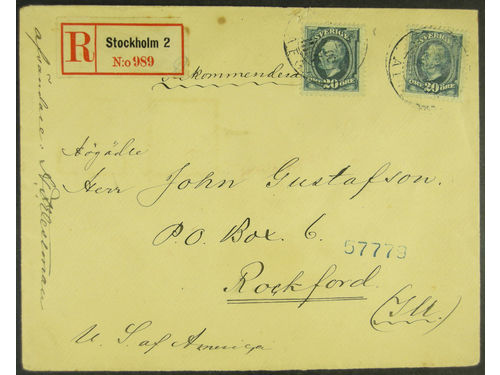 R
Stockholm 2
N:o 989
Rekommenderas
SVERIGE
20 ÖRE 20
SVERIGE
ÖRE 20 ÖRE
Högädle
Herr John Gustafson.
P.O. Box. 6.
57779
Rockford.
(Ill.)
U. S. af America
afsändare: